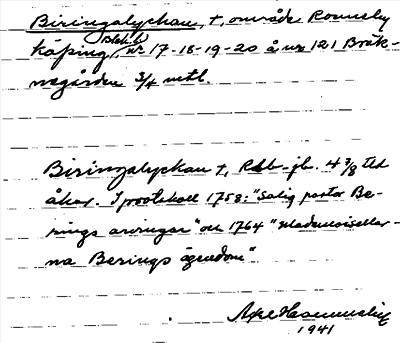 Biringalyckan, †, område Ronneby
köping, Blek. l. nr 17-18-19-20 å nr 121 Bräk-
negården 3/4 mtl.
Biringalyckan †, Rbb-jb. 4 3/8 tld
åker. I protokoll 1758: "Salig pastor Be-
rings arvingar" och 1764 "Mademoiseller-
na Berings ägendom"
Axel
1941